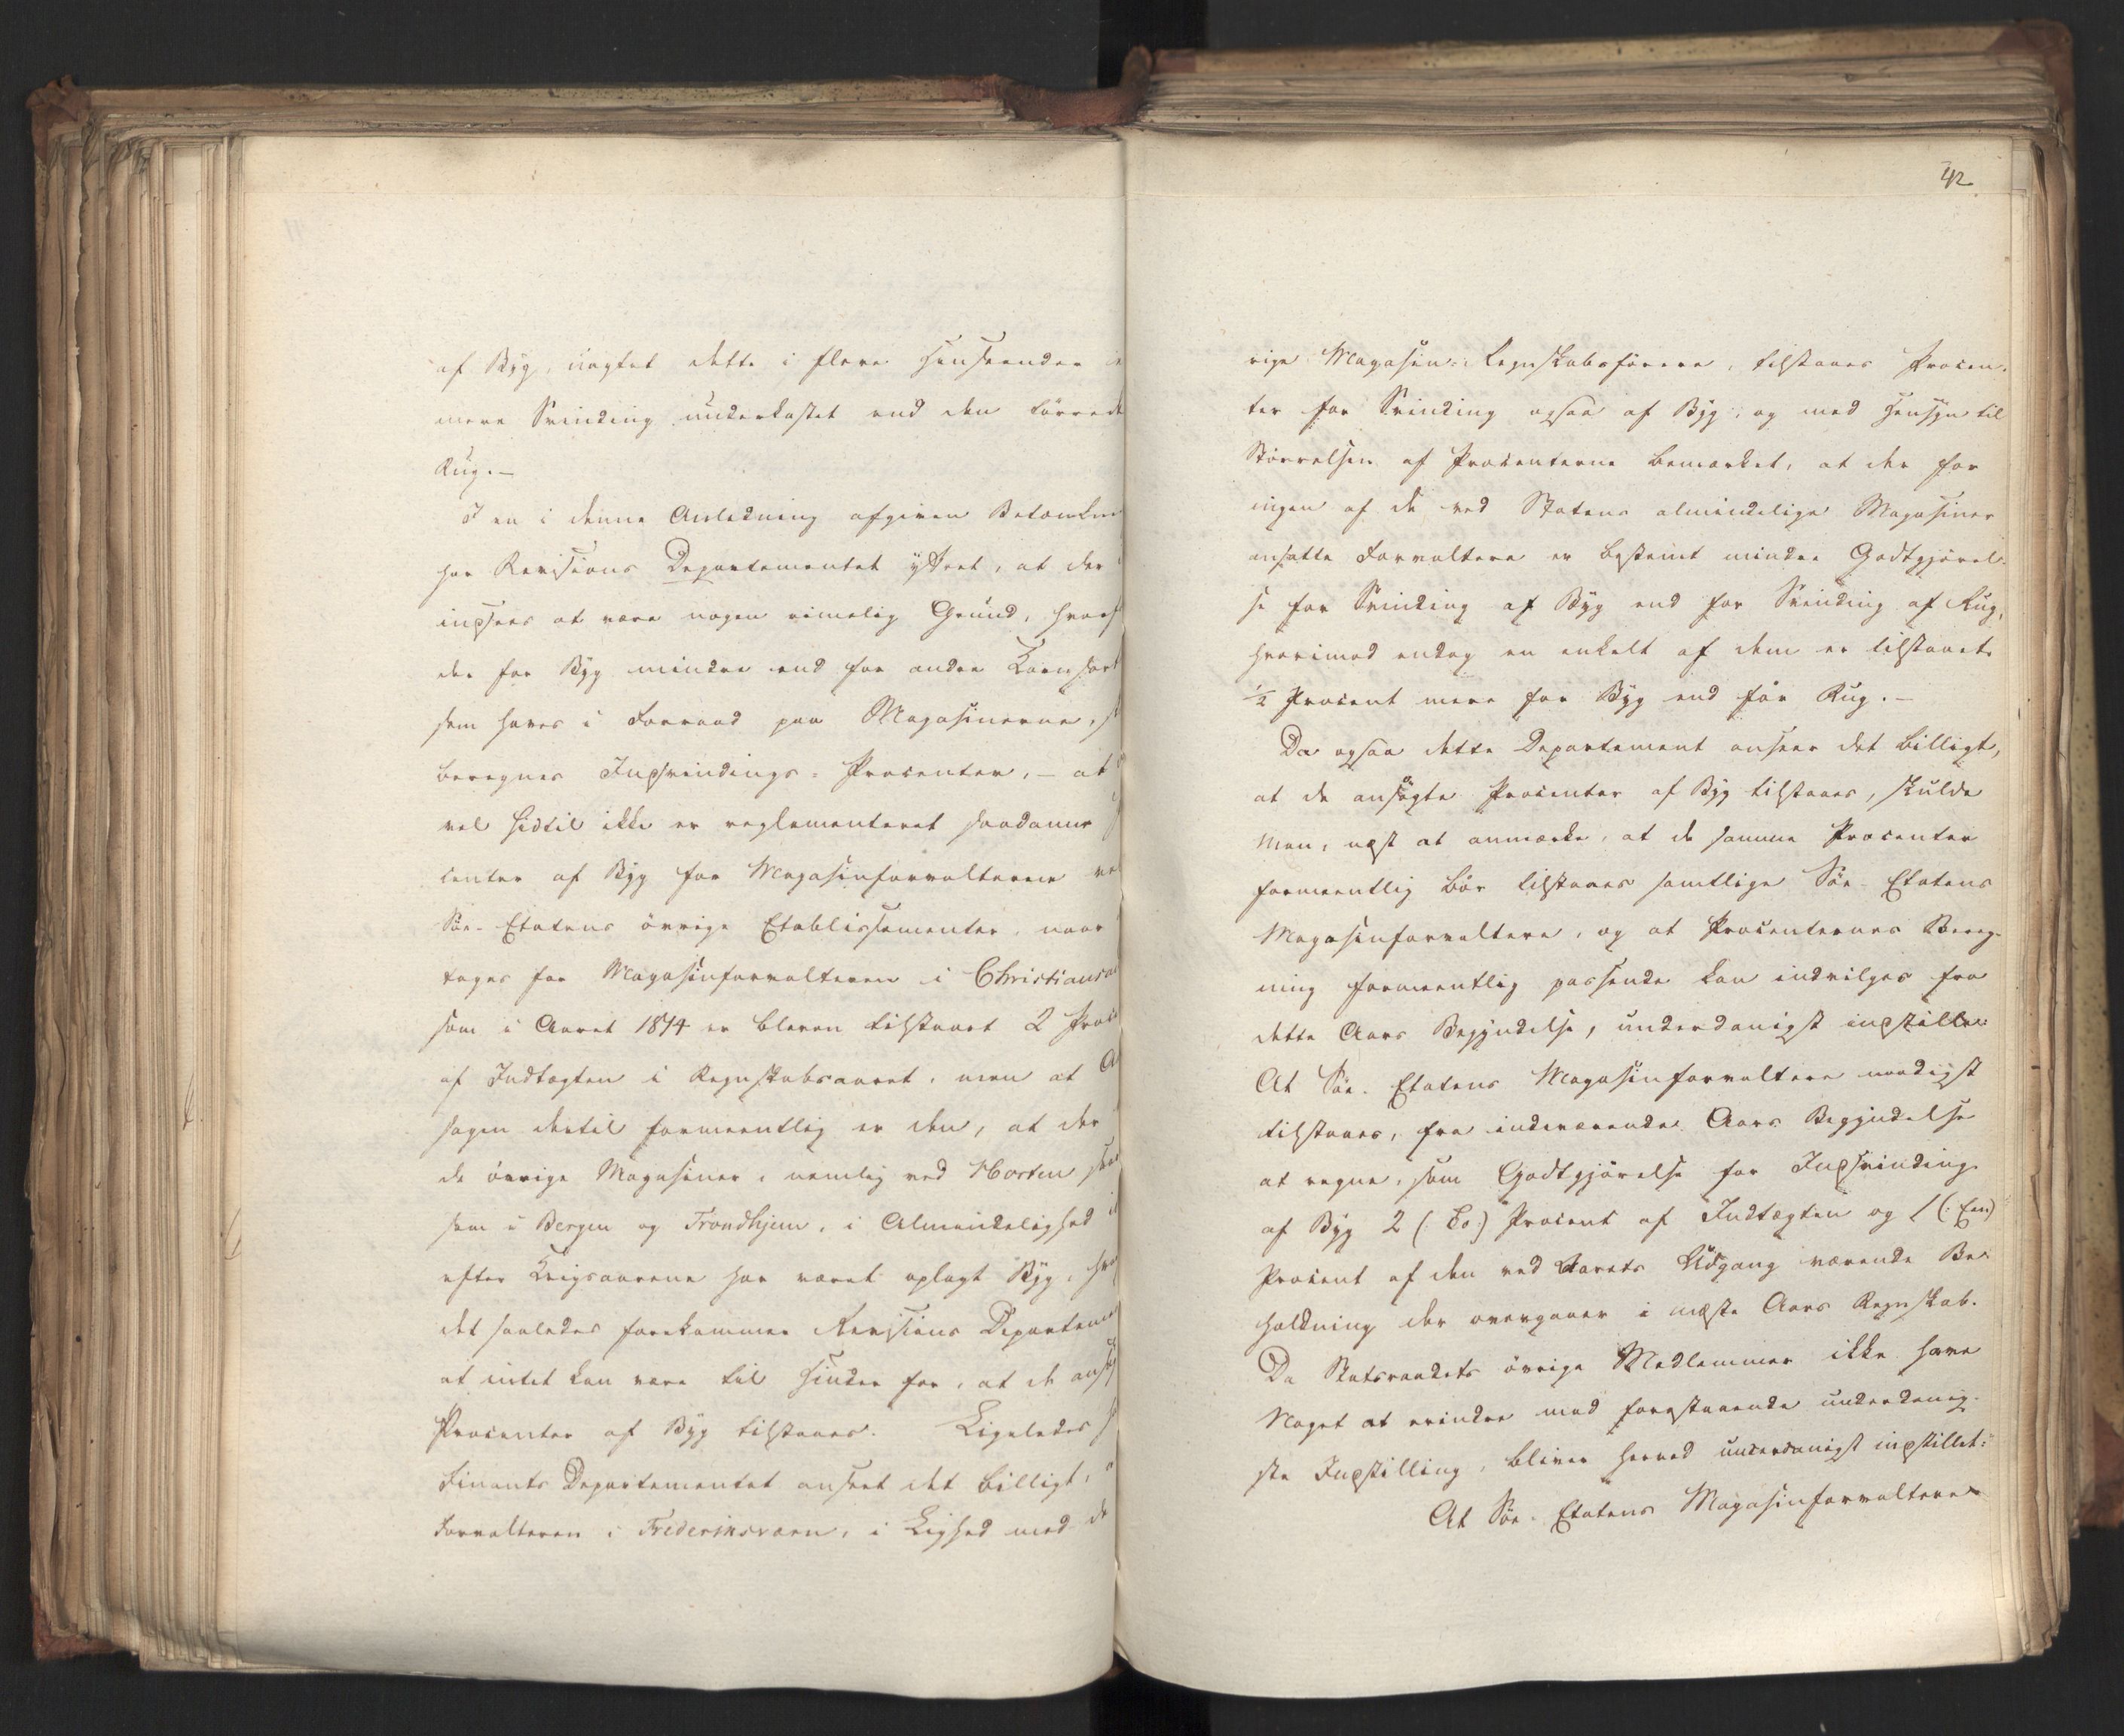 af Byg, uagtet dette i flere Henseender e
mere Svinding underkastet end den tørrede
Rug.—
I en i denne Anledning afgiven Betænkn
har Revisions Departementet yttret, at der
indsees at være nogen rimelig Grund, hvorf
der for Byg mindre end for andre Kornsort
som haves i Forraad paa Magasinerne, s
beregnes Indsvindings-Procenter, — at
vel hidtil ikke er reglementeret saadanne
center af Byg for Magasinforvalterne ve
Søe-Etatens øvrige Etablissementer, naar
tages for Magasinforvalteren i Christiansa
som i Aaret 1814 er bleven tilstaaet 2 Proc
af Indtægten i Regnskabsaaret, men at A
sagen dertil formeentlig er den, at der
de øvrige Magasiner, nemlig ved Horten
som i Bergen og Trondhjem, i Almindelighed i
efter Krigsaarene har været oplagt Byg, hv
det saaledes forekommer Revisions Departeme
at intet kan være til Hinder for, at de ansø
Procenter af Byg tilstaaes. Ligeledes h
Finants Departementet anseet det billigt,
Forvalteren i Frederiksværn, i Lighed med de
42.
rige Magasin-Regnskabsførere, tilstaaes Procen-
ter for Svinding ogsaa af Byg, og med Hensyn til
Størrelsen af Procenterne bemærket, at der for
ingen af de ved Statens almindelige Magasiner
ansatte Forvaltere er bestemt mindre Godtgjørel-
se for Svinding af Byg end for Svinding af Rug,
hvorimod endog en enkelt af dem er tilstaaet
½ Procent mere for Byg end for Rug.—
Da ogsaa dette Departement anseer det billigt,
at de ansøgte Procenter af Byg tilstaaes, skulde
man, næst at anmærke, at de samme Procenter
formeentlig bør tilstaaes samtlige Søe-Etatens
Magasinforvaltere, og at Procenternes Bereg-
ning formeentlig passende kan indvilges fra
dette Aars Begyndelse, underdanigst indstille:
At Søe-Etatens Magasinforvaltere naadigst
tilstaaes, fra indeværende Aars Begyndelse
at regne, som Godtgjørelse for Indsvinding
af Byg 2 (: To:) Procent af Indtægten og 1 (: Een:)
Procent af den ved Aarets Udgang værende Be-
holdning der overgaaer i næste Aars Regnskab.
Da Statsraadets øvrige Medlemmer ikke have
Noget at erindre mod forestaaende underdanig-
ste Indstilling, bliver herved underdanigst indstillet:
At Søe-Etatens Magasinforvaltere